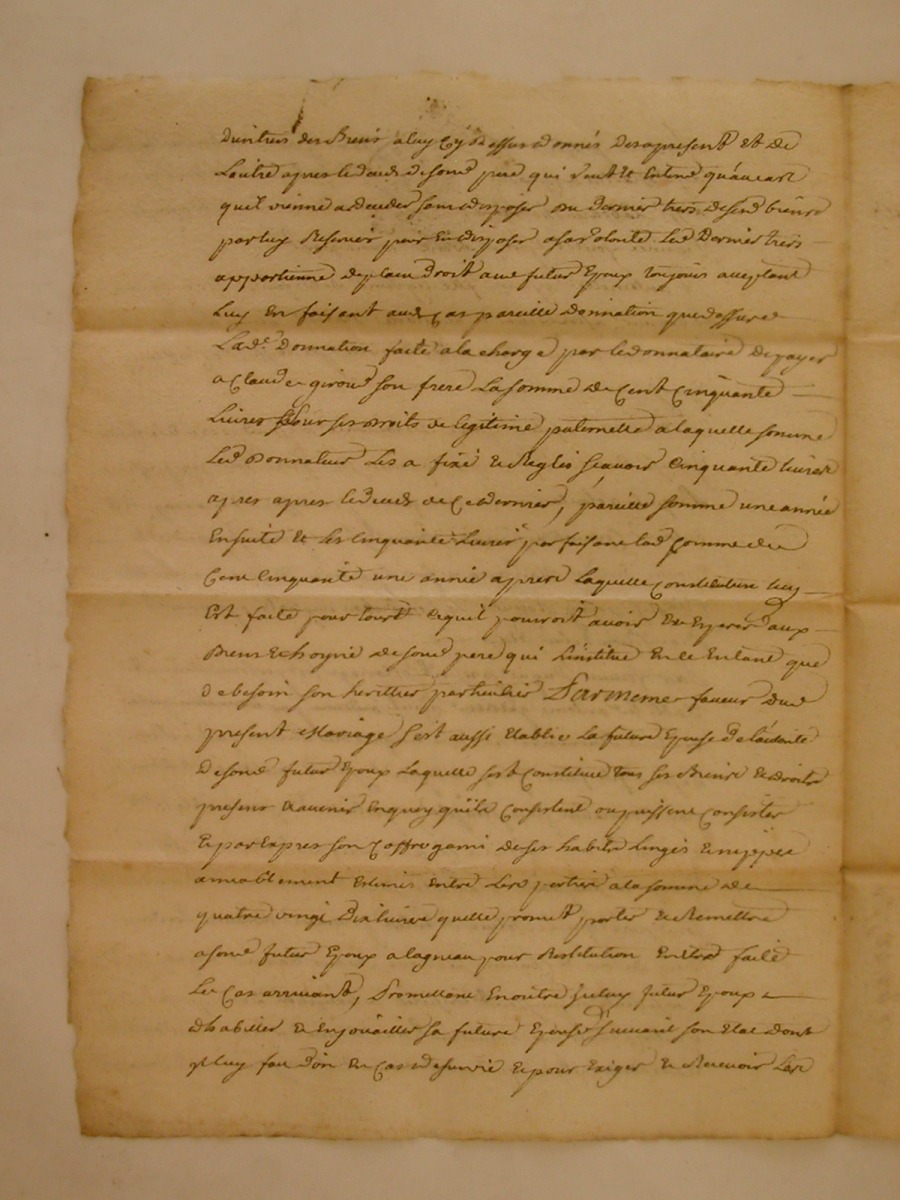 dun tiers des Biens a luy Cy dessus donnés des apresent et de
Lautre apres le deceds de sond pere qui veut et Entend quau cas
quil vienne a deceder sans disposer du dernier tiers de send biens
par luy Reservés pour En disposer a sa volonté Led Dernier tiers
appartienne de plein droit aud futur Epoux toujours acceptant
Luy En faisant aud Cas pareille donnation que dessus
Lad.e Donnation faite a la charge par le donnataire de payer
a Claude giroud son frere La somme de Cent Cinquante
Livres pour ses droits de legitime paternelle a laquelle somme
Led donnateur Les a fixé & Reglés scavoir Cinquante livres
apres apres le deceds de Ce dernier, pareille somme une année
Ensuite et les Cinquante Livres parfaisant lad somme de
Cent Cinquante une année apres Laquelle Constitution luy
Est faite pour tout Ce quil pouroit avoir & Esperer aux
Biens & hoyrie de sond pere qui Linstitue En le Entant que
de besoin son heritier particulier Par meme faveur dud
present Mariage sest aussi Etablie La future Epouse de lautorité
de sond futur Epoux Laquelle sest Constitué tous ses Biens & droits
presens & avenir En quoy quils Consistent ou puissent Consister
& par Expres son Coffre garni de ses habits Linges & nippes
amiablement Estimés Entre Les parties a la somme de
quatre vingt dix livres quelle promet porter & Remettre
a sond futur Epoux a la charge pour Restitution En Etre faite
Le Cas arrivant, Promettant En outre iceluy futur Epoux
dhabiller & Enjoüailler sa future Epouse suivant son Etat dont
il luy fait don En Cas de survie & pour Exiger & Recevoir Les